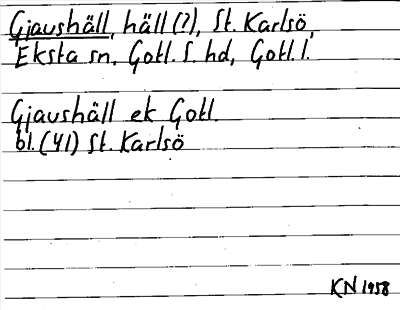 Gjaushäll, häll (?), St. Karlsö,
Eksta sn. Gotl. S. hd, Gotl. l.
Gjaushäll ek Gotl.
bl. (41) St. Karlsö
KN 1958